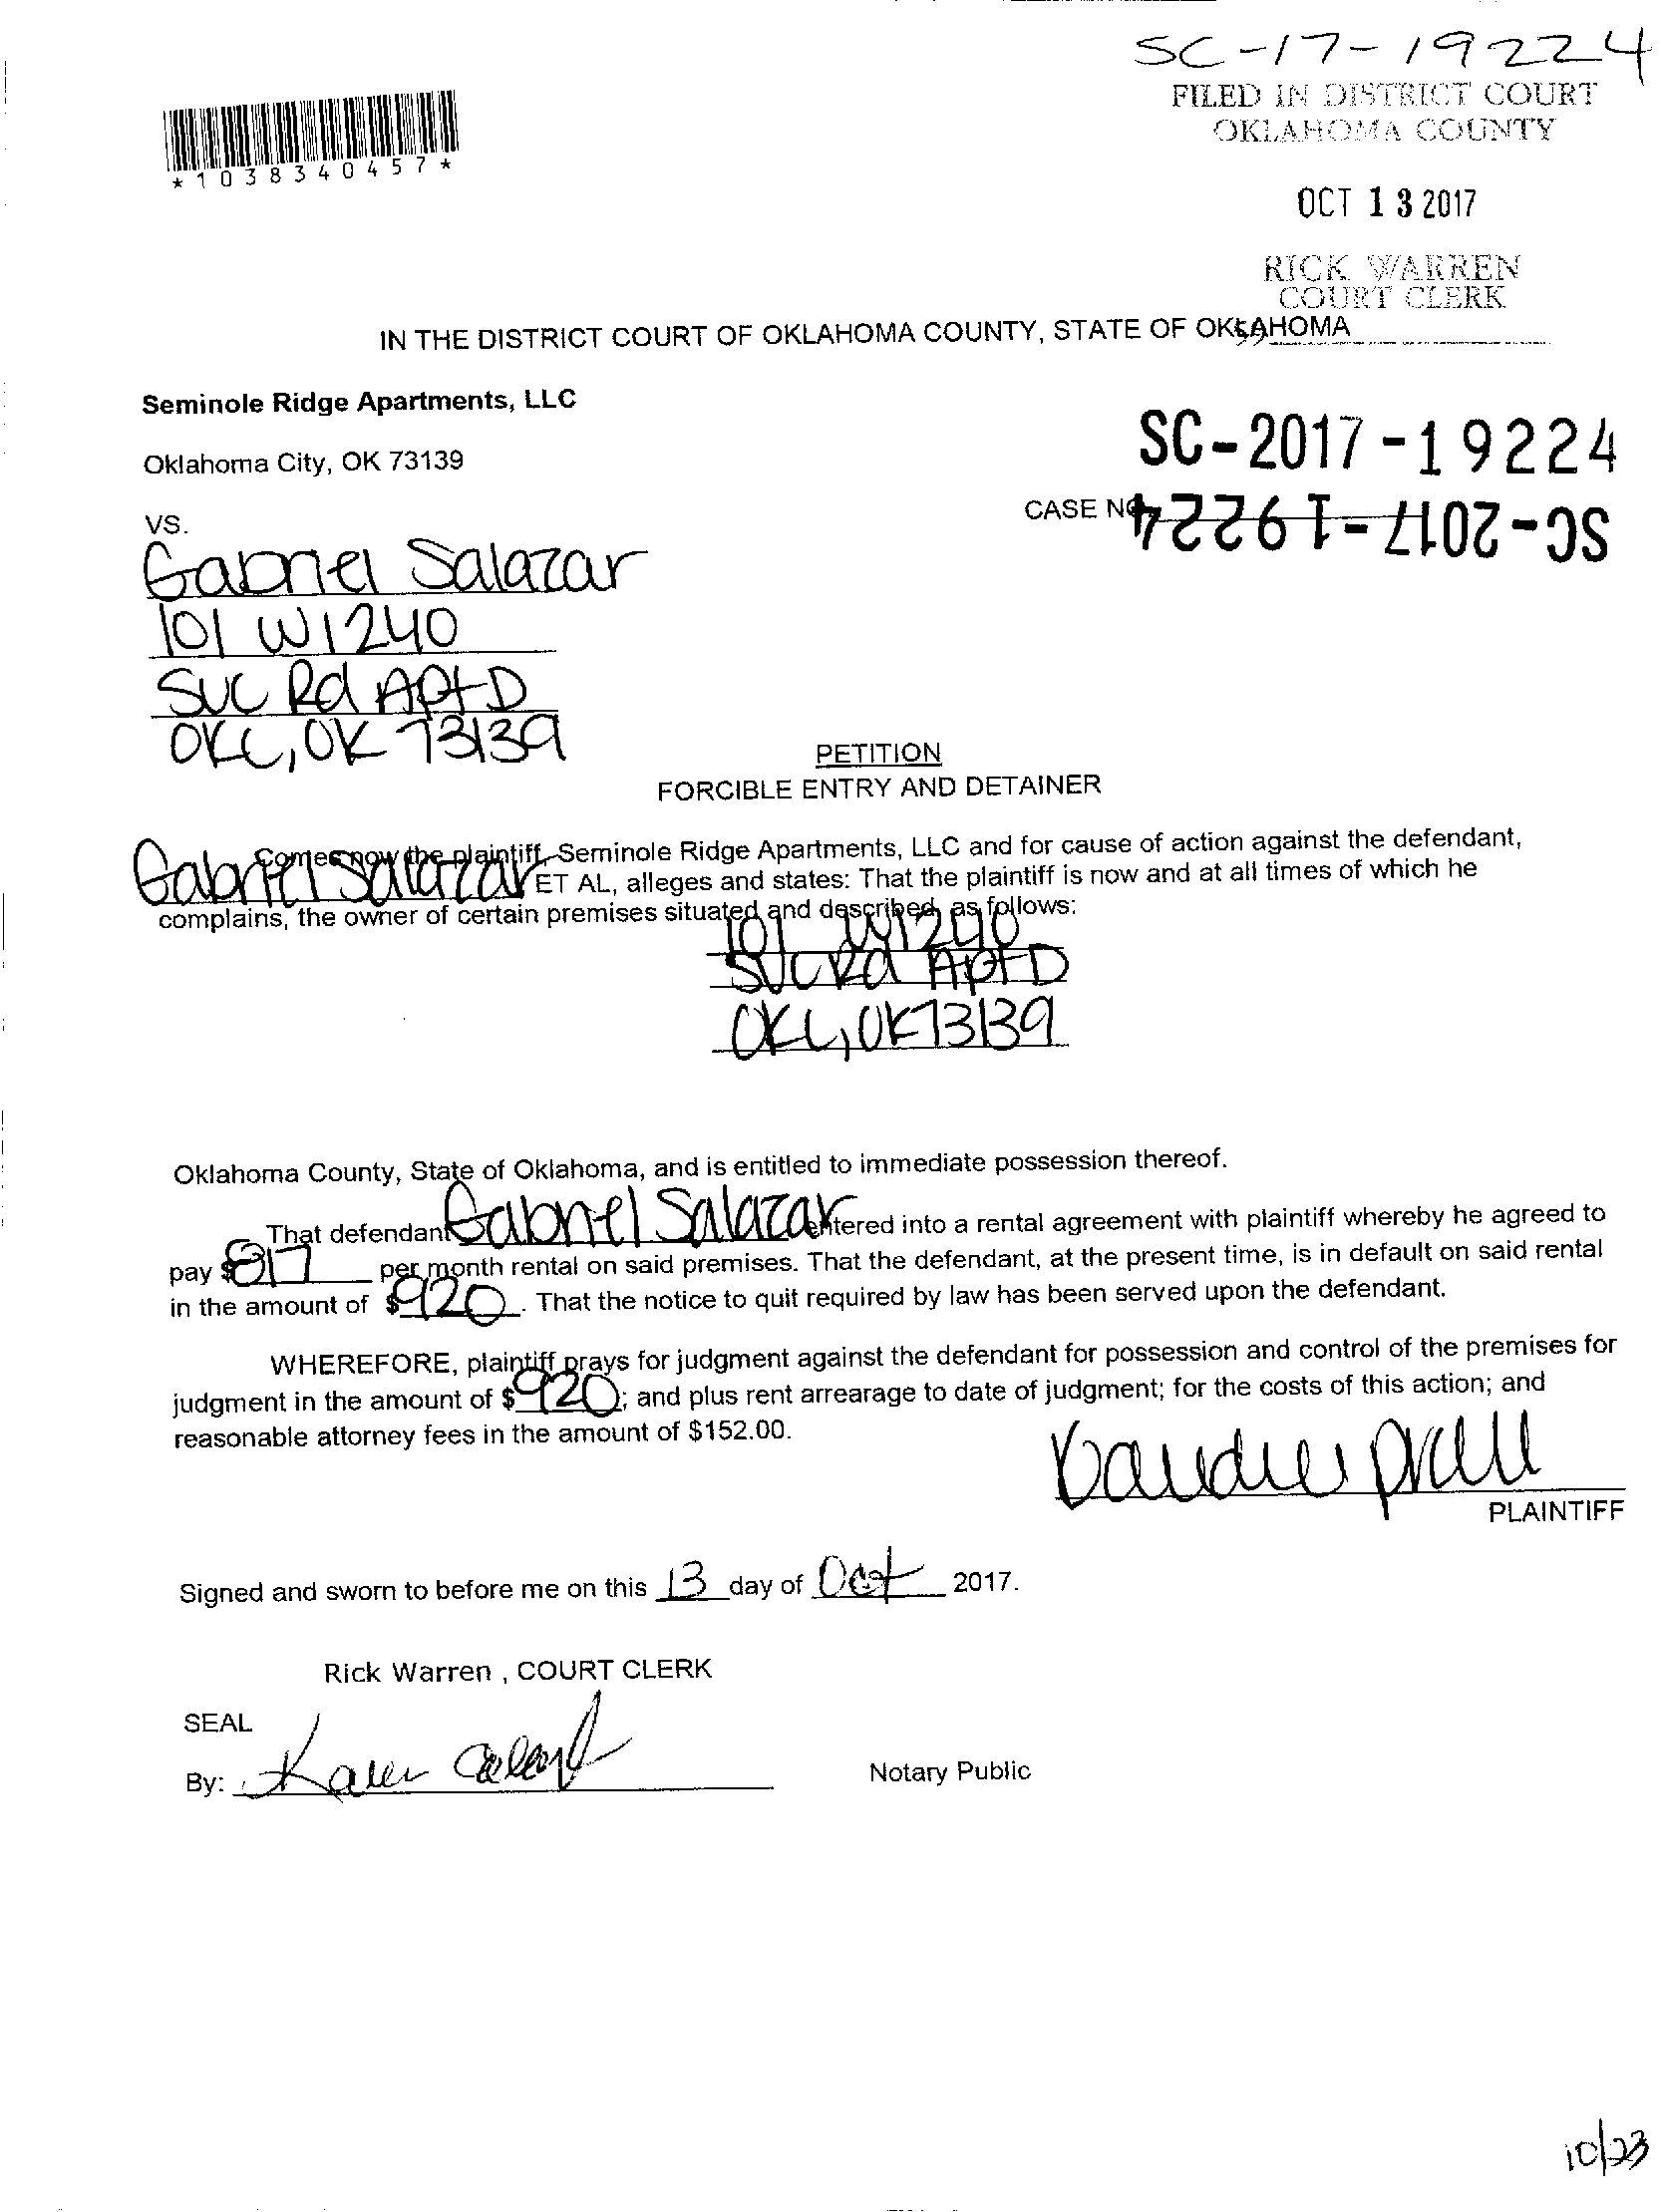 SC-17-19224
FILED IN DISTRICT COURT
OKLAHOMA COUNTY
*1038340457*
OCT 13 2017
RICK WARREN
COURT CLERK
IN THE DISTRICT COURT OF OKLAHOMA COUNTY, STATE OF OKLAHOMA
Seminole Ridge Apartments, LLC
SC-2017-19224
Oklahoma City, OK 73139
CASE NO.
SC-2017-19224
VS.
Gabriel Salazar
101 W I 240
SVC Rd Apt D
OKC, OK 73139
PETITION
FORCIBLE ENTRY AND DETAINER
Comes now the plaintiff Seminole Ridge Apartments, LLC and for cause of action against the defendant,
Gabriel Salazar ET AL, alleges and states: That the plaintiff is now and at all times of which he
complains, the owner of certain premises situated and described as follows:
101 W I 240
SVC Rd Apt D
OKC, OK 73139
Oklahoma County, State of Oklahoma, and is entitled to immediate possession thereof.
That defendant Gabriel Salazar entered into a rental agreement with plaintiff whereby he agreed to
pay $817 per month rental on said premises. That the defendant, at the present time, is in default on said rental
in the amount of $920. That the notice to quit required by law has been served upon the defendant.
WHEREFORE, plaintiff prays for judgment against the defendant for possession and control of the premises for
judgment in the amount of $920; and plus rent arrearage to date of judgment; for the costs of this action; and
reasonable attorney fees in the amount of $152.00.
PLAINTIFF
Signed and sworn to before me on this 13 day of Oct 2017.
Rick Warren , COURT CLERK
SEAL
By: Karen
Notary Public
10/23